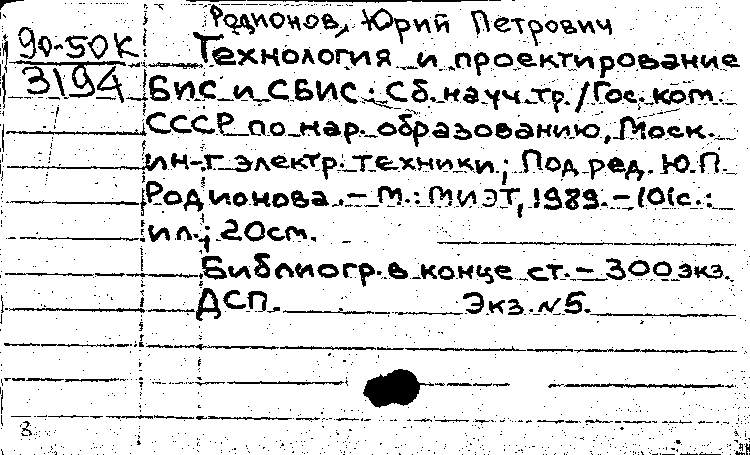 Родионов, Юрий Петрович
90-50К
3194
Технология и проектирование
БИС и СБИС: Сб. науч. тр./Гос. ком.
СССР по нар. образованию, Моск.
ин-т электр. техники; Под ред. Ю.П.
Родионова. – М.: МИЭТ, 1989. – 101с.:
ил.; 20см.
Библиогр. в конце ст. – 300 экз.
ДСП. Экз. №5.